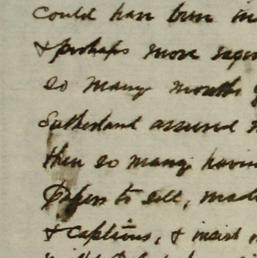 could have been in
& perhaps more
so many months
Sutherland assured
then so many havin
Papers to sell, made
& captious, & insist